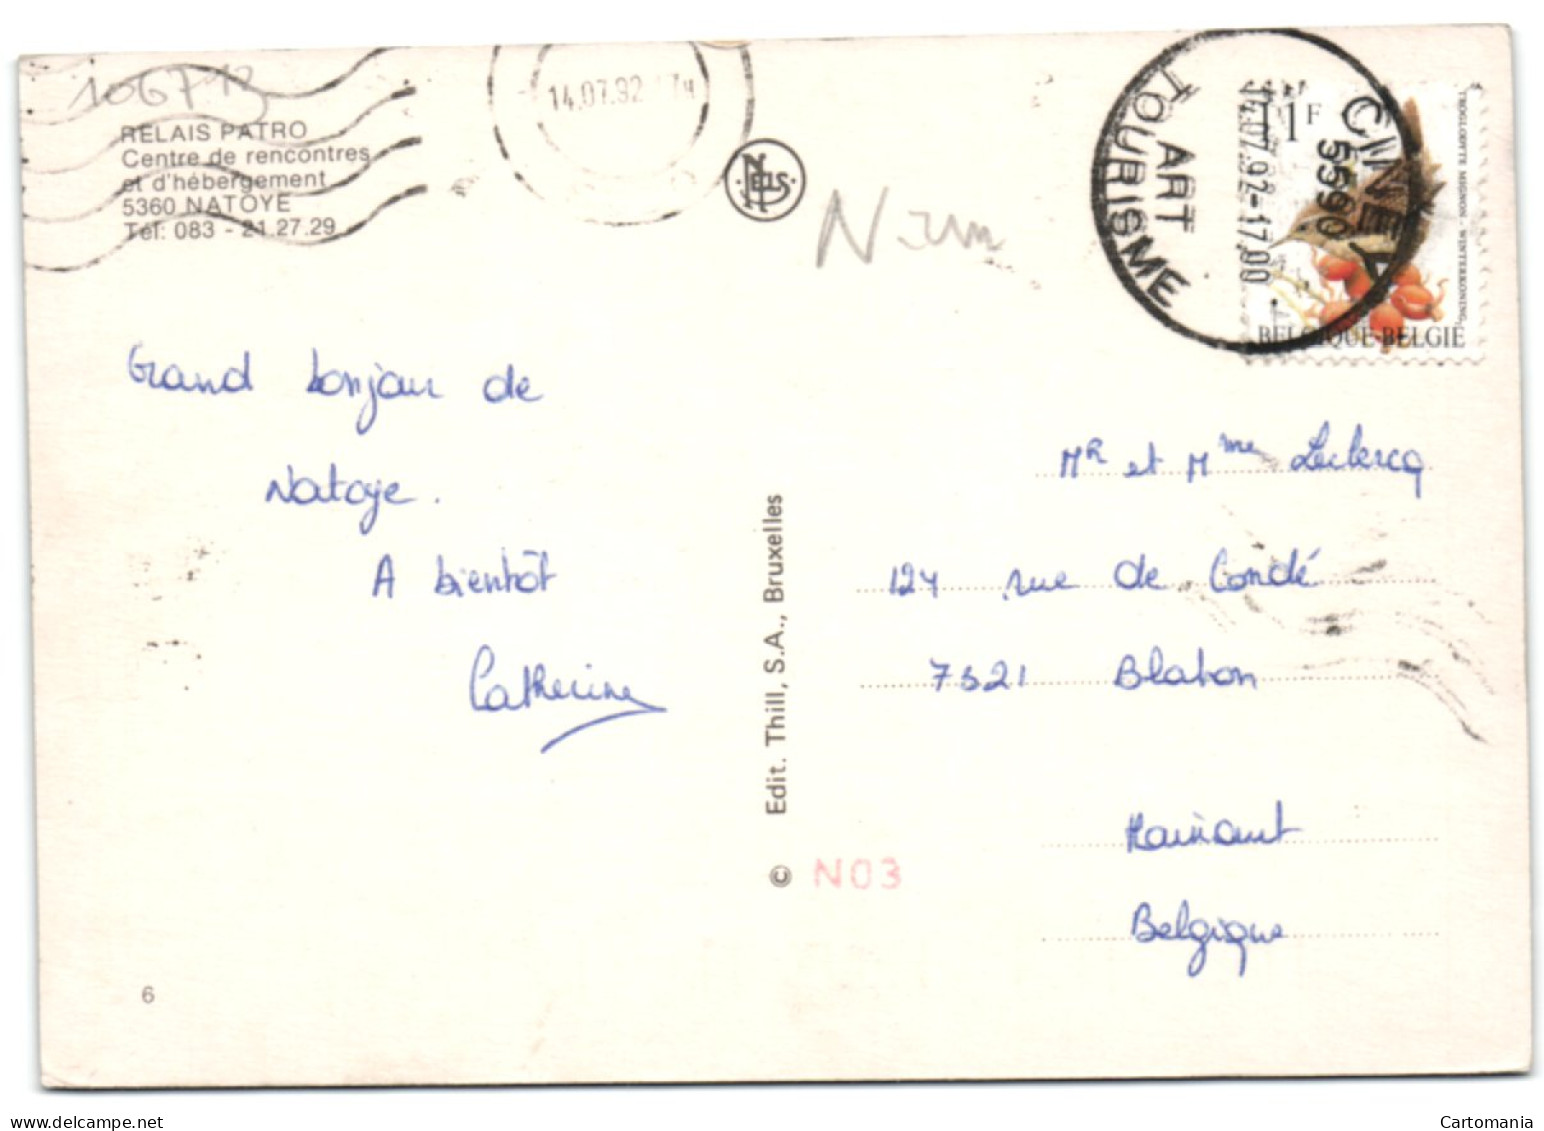 106713
RELAIS PATRO
Centre de rencontres
et d'hébergement
5360 NATOYE
Tél: 083 - 21.27.29
14.07.92 17H
NELS
CINEY
5590
14.07.92-17.00
ART
TOURISME
11F
TROGLODYTE MIGNON - WINTERKONING
BELGIQUE-BELGIE
Grand bonjour de
Natoye.
A bientôt
Catherine
MR et Mme Leclercq
124 rue de Condé
7321 Blaton
Hainaut
Belgique
Edit. Thill, S.A., Bruxelles
© N03
6
delcampe.net
Cartomania